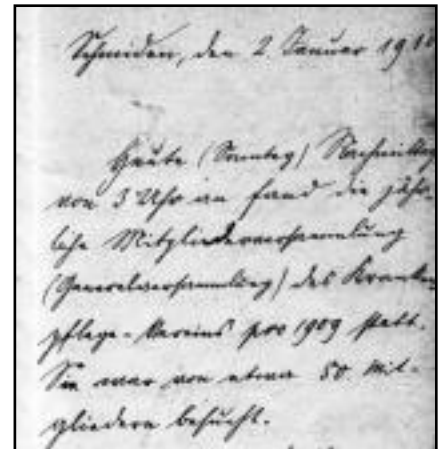 Schmiden, den 2. Januar 1910
Heute (Sonntag) Nachmittag
von 3 Uhr an fand die jähr-
liche Mitgliederversammlung
(Generalversammlung) des Kranken-
pflege-Vereins pro 1909 statt.
Sie war von etwa 50 Mit-
gliedern besucht.